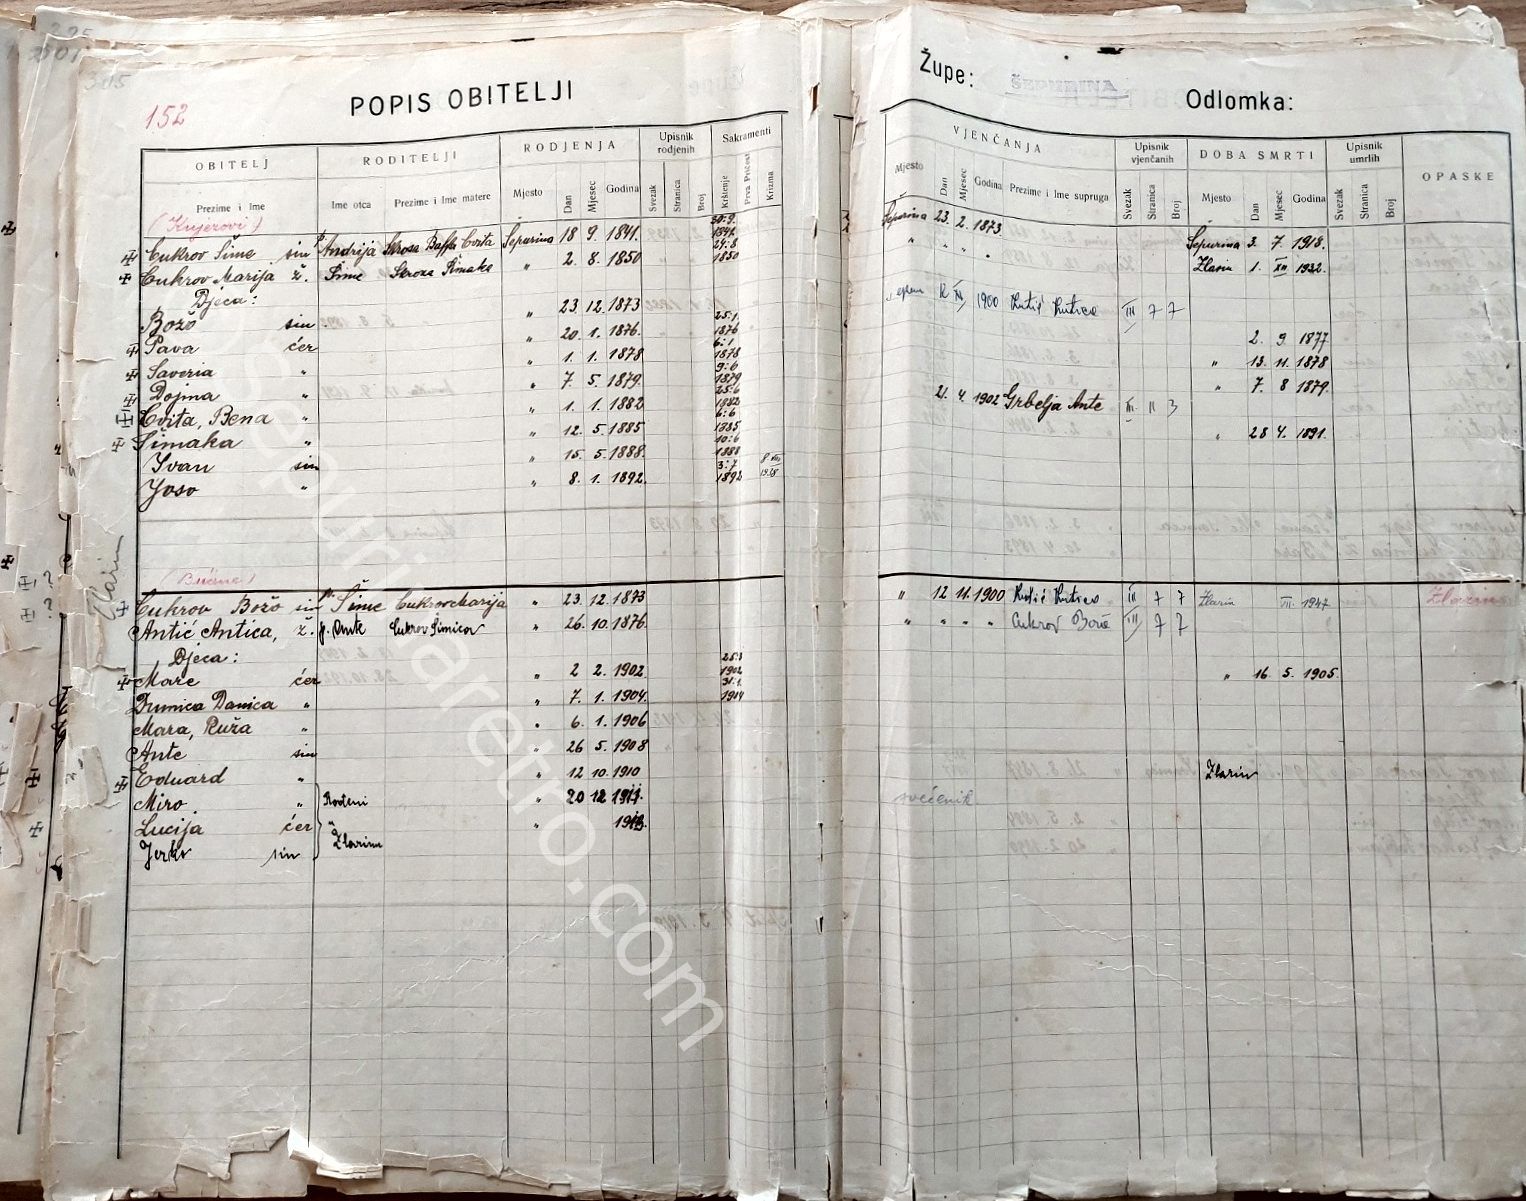 305
152
POPIS OBITELJI
Župe: ŠEPURINA
Odlomka:
OBITELJ RODITELJI RODJENJA Upisnik rodjenih Sakramenti
Prezime i Ime Ime otca Prezime i Ime matere Mjesto Dan Mjesec Godina Svezak Stranica Broj Krštenje Prva Pričest Krizma
VJENČANJA Upisnik vjenčanih DOBA SMRTI Upisnik umrlih OPASKE
Mjesto Dan Mjesec Godina Prezime i Ime supruga Svezak Stranica Broj Mjesto Dan Mjesec Godina Svezak Stranica Broj
Cukrov Šime sin Andrija Skroza Cvita Šepurina 18 9. 1841. 30.9. 1841. Šepurina 23. 2. 1873 Šepurina 3. 7. 1918.
Cukrov Marija ž. Šime Skroza Šimaka " 2. 8. 1850 1850 " " " " Zlarin 1. XII 1932.
Djeca:
Božo sin " 23. 12. 1873 1900 III 7 7
Pava ćer " 20. 1. 1876. 25.1. 1876 2. 9. 1877
Saveria " " 1. 1. 1878. 6.1. 1878 " 13. 11. 1878
Dojma " " 7. 5. 1879. 9.6 1879 " 7. 8 1879.
Cvita, Bena " " 1. 1. 1882 1882 21. 4. 1902 Grbelja Ante III 11 3
Šimaka " " 12. 5. 1885 6.6 1885 " 28 4. 1891.
Ivan sin " 15. 5. 1888. 10.6 1888
Joso " " 8. 1. 1892. 3.7 1892 8 VIII 1938
Cukrov Božo sin p. Šime Cukrov Marija " 23. 12. 1873 " 12 11. 1900 III 7 7 Zlarin VII. 1947 Zlarin
Antić Antica, ž. p. Ante Cukrov Šimica " 26. 10. 1876. " " " " Cukrov Božo III 7 7
Djeca:
Mare ćer " 2 2. 1902 1902 " 16. 5. 1905.
Dumica Danica " " 7. 1. 1904. 31.1. 1904
Mara, Ruža " " 6. 1. 1906
Ante sin " 26 5. 1908
Eduard " " 12 10. 1910 Zlarin
Miro " Rođeni " 20 12 svećenik
Lucija ćer " "
Jerko sin Zlarinu
Zlarin
sepurinaretro.com